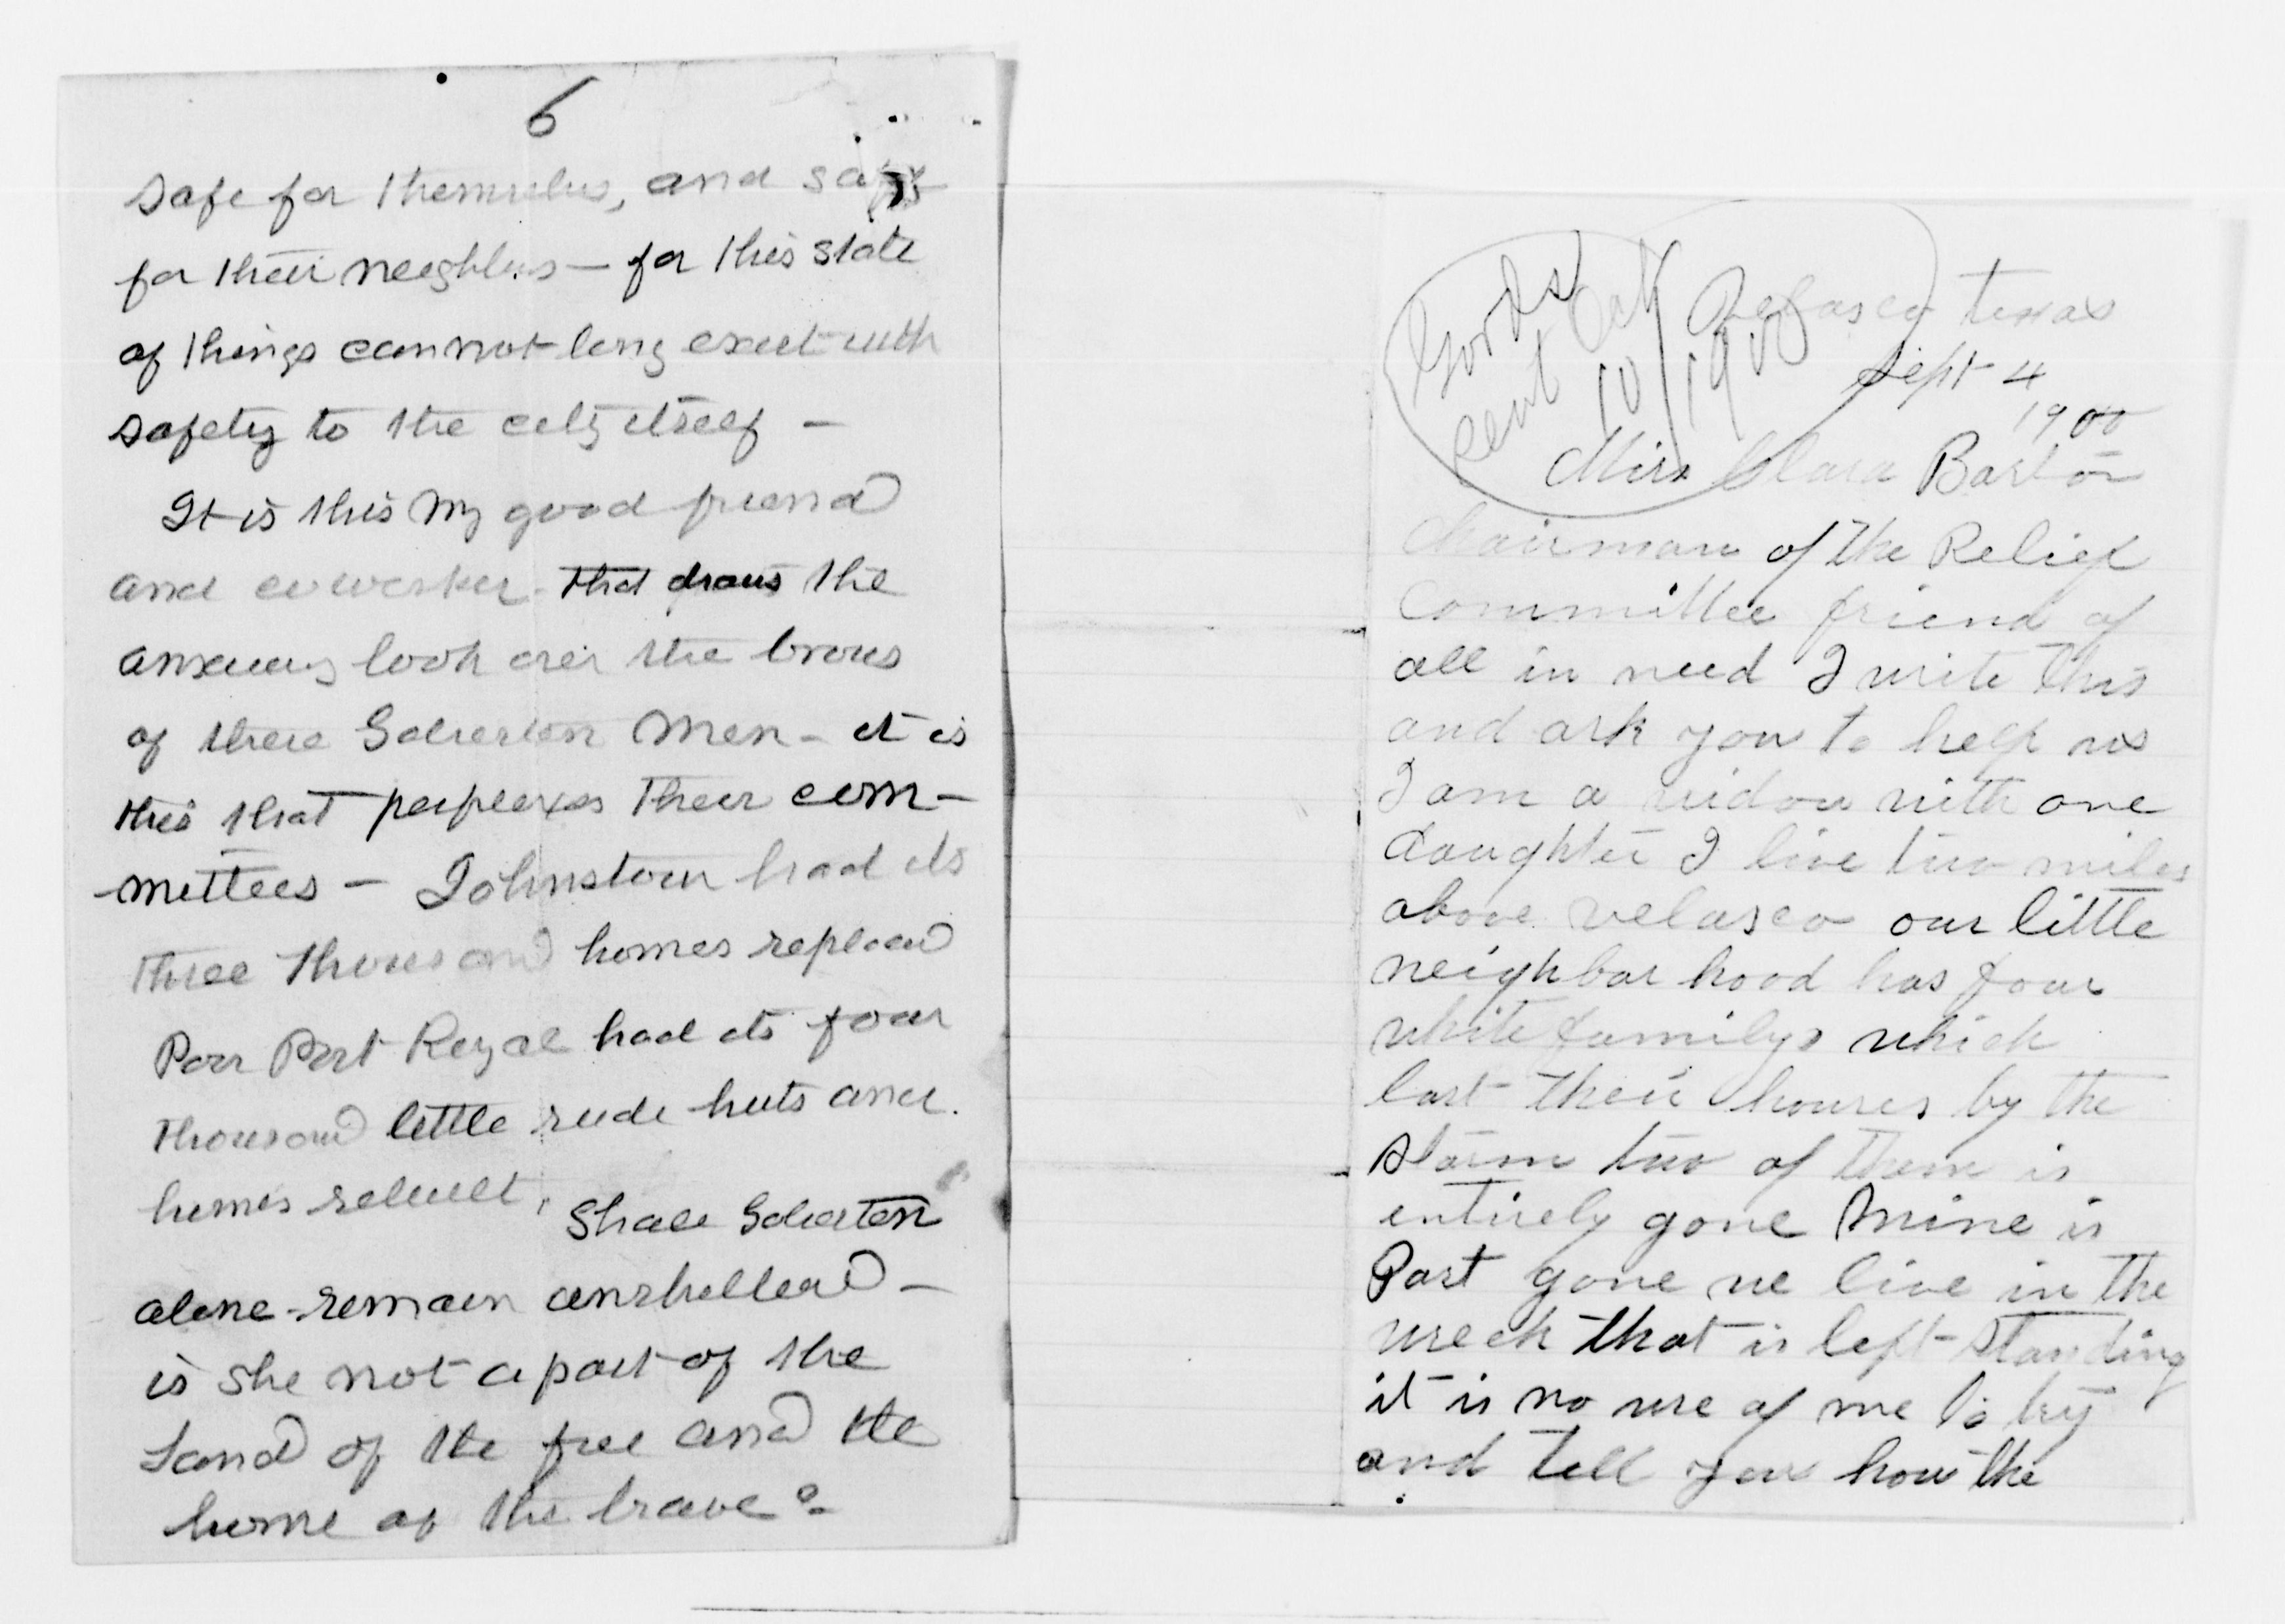 6
safe for themselves, and safe
for their neighbors — for this state
of things cannot long exist with
safety to the city itself —
It is this my good friend
and coworker that draws the
anxious look over the brows
of these Galveston men — it is
this that perplexes their com-
mittees — Johnstown had its
three thousand homes replaced
Poor Port Royal had its four
thousand little rude huts and
homes rebuilt. Shall Galveston
alone remain unsheltered —
is she not a part of the
Land of the free and the
home of the brave?
Goods
sent Oct
10/1900
Velasco texas
Sept 4
1900
Miss Clara Barton
Chairman of the Relief
Committee friend of
all in need I write this
and ask you to help us
I am a widow with one
daughter I live two miles
above velasco our little
neighbor hood has four
white familys which
lost their houses by the
storm two of them is
entirely gone Mine is
Part gone we live in the
wreck that is left standing
it is no use of me to try
and tell you how the